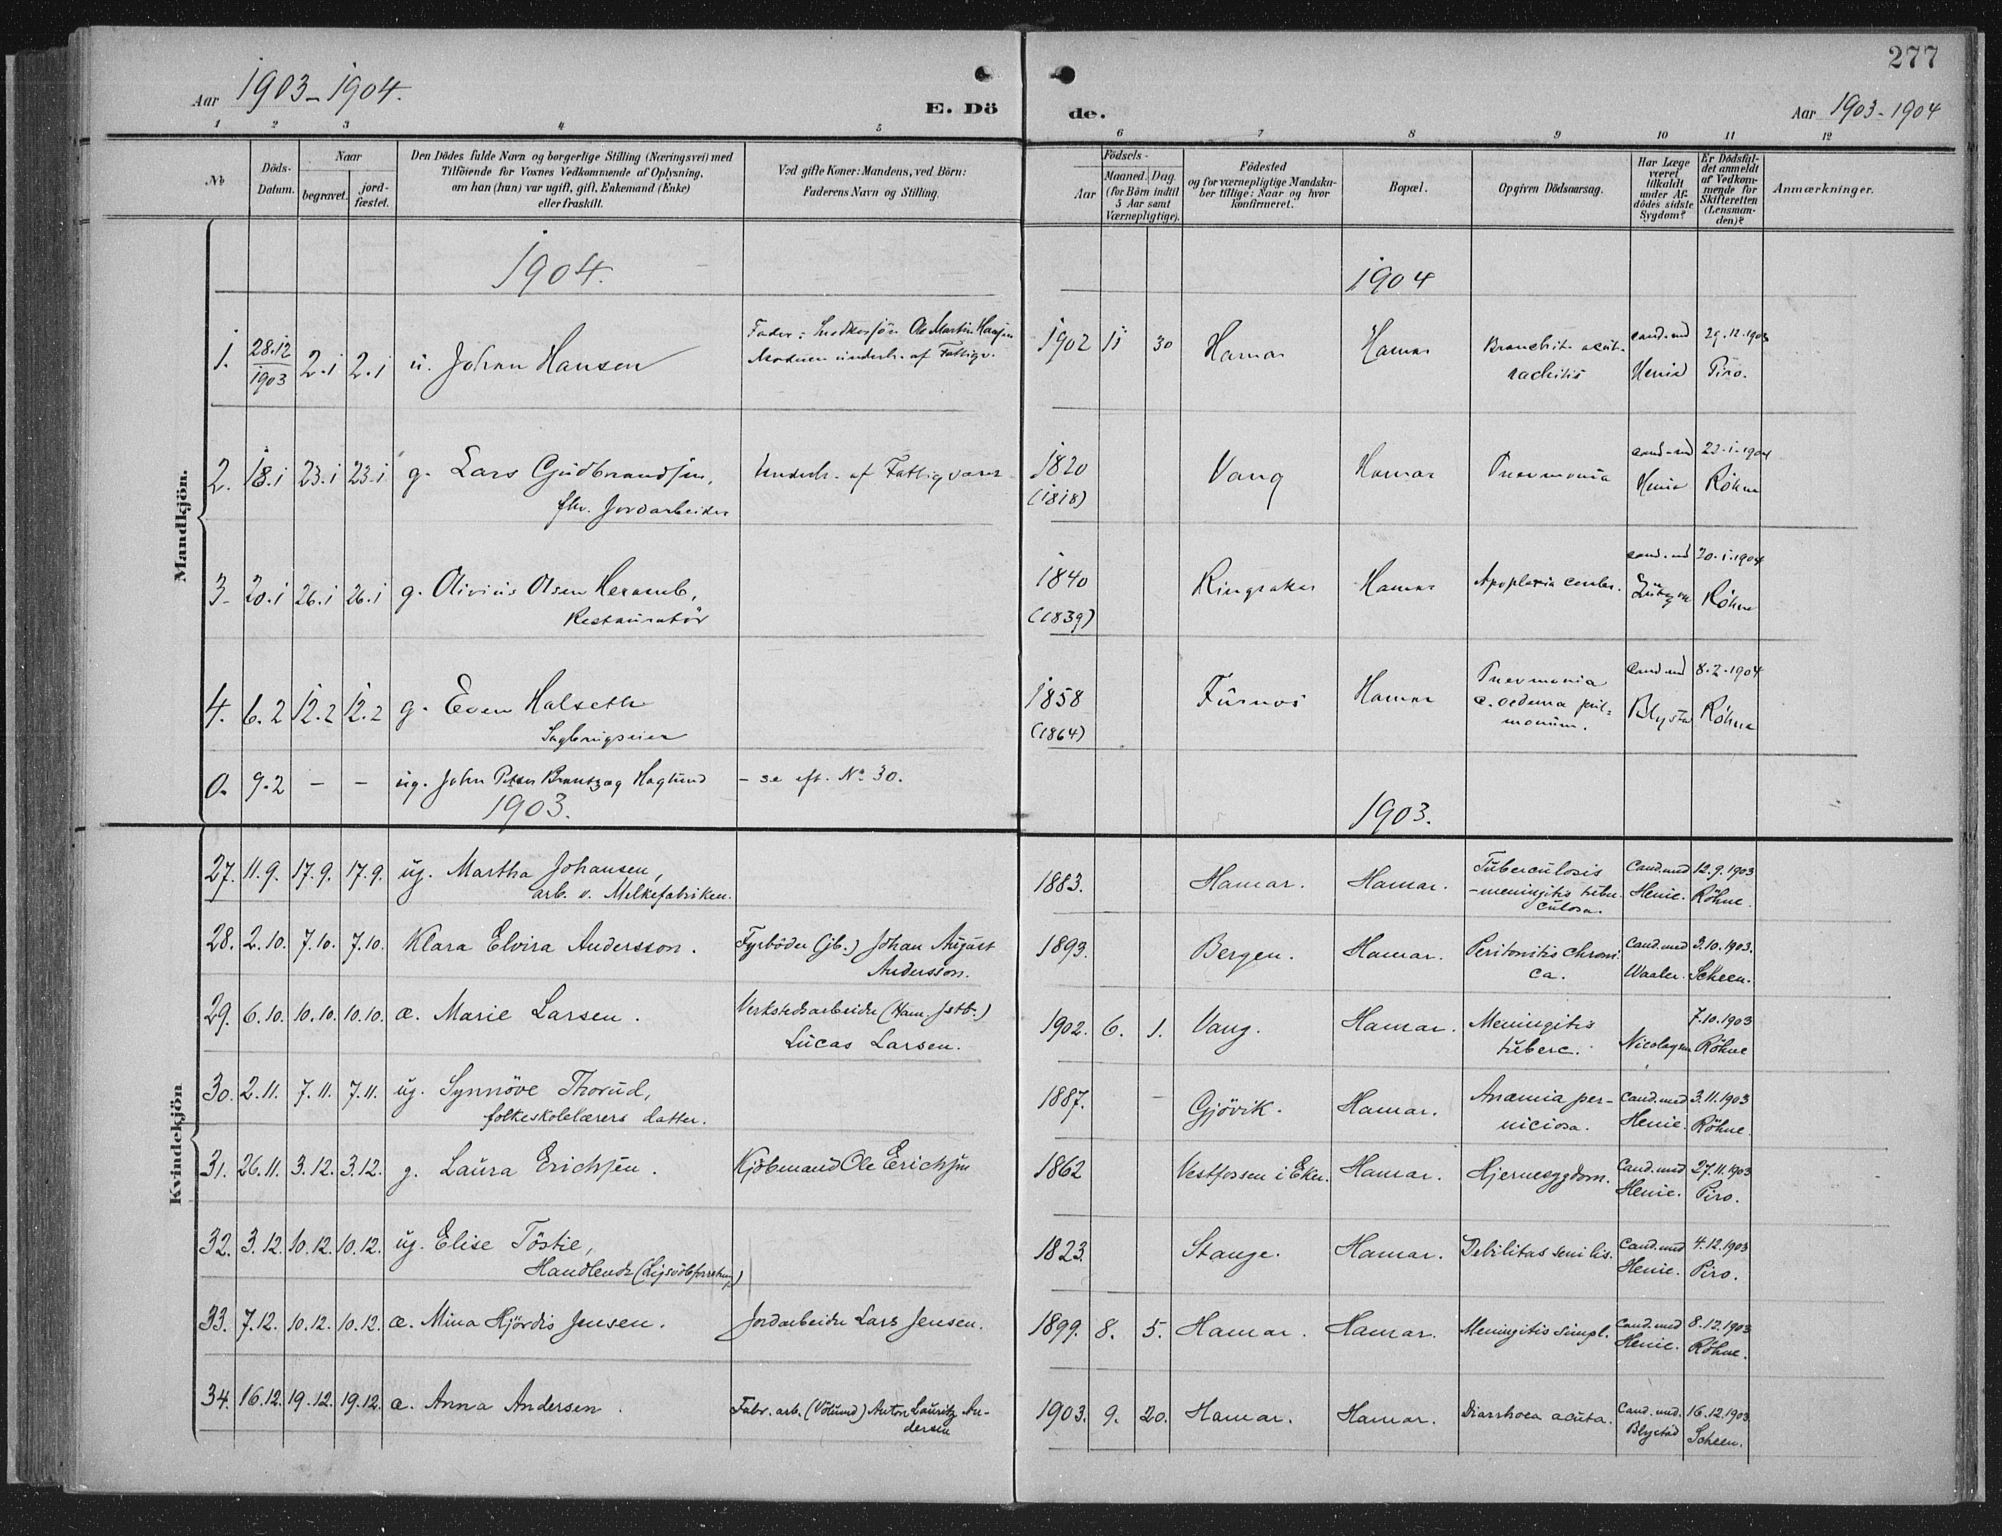 277
Aar 1903-1904.
E. Dö
de.
Aar 1903-1904
1 2 3 4 5 6 7 8 9 10 11 12
№
Döds-
Datum.
Naar
begravet.
jord-
fæstet.
Den Dödes fulde Navn og borgerlige Stilling (Næringsvei) med
Tilföiende for Voxnes Vedkommende af Oplysning,
om han (hun) var ugift, gift, Enkemand (Enke)
eller fraskilt.
Ved gifte Koner: Mandens, ved Börn:
Faderens Navn og Stilling.
Aar
Födsels-
Maaned. Dag.
(for Börn indtil
5 Aar samt
Værnepligtige).
Födested
og for værnepligtige Mandska-
ber tillige: Naar og hvor
konfirmeret.
Bopæl.
Opgiven Dödsaarsag.
Har Læge
været
tilkaldt
under Af-
dödes sidste
Sygdom?
Er Dödsfal-
det anmeldt
af Vedkom-
mende for
Skifteretten
(Lensman-
den)?
Anmærkninger.
Mandkjön.
1904.
1904
1. 28.12 1903 2.1 2.1 u. Johan Hansen
Fader: Ole Martin Hansen
underh. af Fattigv.
1902 11 30 Hamar Hamar Bronchit. acut. rachitis cand. med Henie 29.12.1903 Piro.
2. 18.1 23.1 23.1 g. Lars Gudbrandsen,
fhv. Jordarbeider
Underh. af Fattigvæsen
1820 (1818) Vang Hamar Pneumonia cand. med Henie 23.1.1904 Röhne
3. 20.1 26.1 26.1 g. Olivius Olsen Heramb,
Restauratör
1840 (1839) Ringsaker Hamar Apoplexia cerebr. cand. med 20.1.1904 Röhne
4. 6.2 12.2 12.2 g. Even Halseth
Sagbrugseier
1858 (1864) Furnes Hamar Pneumonia c. oedema pul-
monum. Cand. med Blystad 8.2.1904 Röhne
0. 9.2 - - ug. John Petter Brantzæg Haglund - se eft. No 30.
1903.
1903.
Kvindekjön
27. 11.9. 17.9. 17.9. ug. Martha Johansen,
arb. v. Melkefabriken.
1883. Hamar. Hamar. Tuberculosis
-meningitis tuber
culosa. Cand. med Henie. 12.9.1903 Röhne.
28. 2.10. 7.10. 7.10. Klara Elvira Andersson.
Fyrböder (jb.) Johan August
Andersson.
1893. Bergen. Hamar. Peritonitis chroni
ca. Cand. med Waaler. 3.10.1903. Scheen.
29. 6.10. 10.10. 10.10. æ. Marie Larsen.
Verkstedsarbeider (Ham. Jstb.)
Lucas Larsen.
1902. 6. 1. Vang. Hamar. Meningitis
tuberc. Nicolaysen 7.10.1903 Röhne
30. 2.11. 7.11. 7.11. ug. Synnöve Thorud,
folkeskolelærers datter.
1887. - Gjövik. Hamar. Anæmia per-
niciosa. Cand. med Henie. 3.11.1903 Röhne.
31. 26.11. 3.12. 3.12. g. Laura Erichsen.
Kjöbmand Ole Erichsen
1862 Vestfossen i Eker. Hamar. Hjernesygdom. Cand. med Henie. 27.11.1903 Piro.
32. 3.12. 10.12. 10.12. ug. Elise Töstie,
Handlende
1823. Stange. Hamar. Debilitas senilis. Cand. med Henie. 4.12.1903 Piro.
33. 7.12. 10.12. 10.12. æ. Mina Hjördis Jensen.
Jordarbeider Lars Jensen.
1899. 8. 5. Hamar. Hamar. Meningitis simpl. Cand. med Henie. 8.12.1903 Röhne.
34. 16.12. 19.12. 19.12. æ. Anna Andersen.
Fabr. arb. (Völund) Anton Lauritz An-
dersen
1903. 9. 20. Hamar. Hamar. Diarrhoea acuta. Cand. med. Blystad 16.12.1903 Scheen.